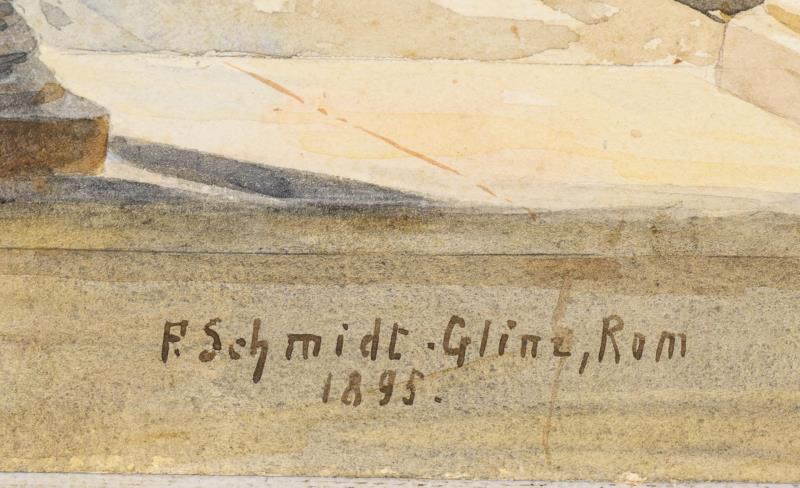 F. Schmidt-Glinz, Rom
1895.